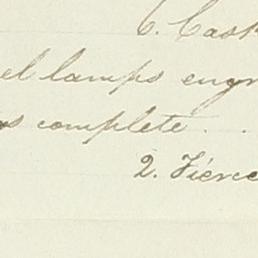 6. Cask
el lamps engr
s complete . .
2. Fierce